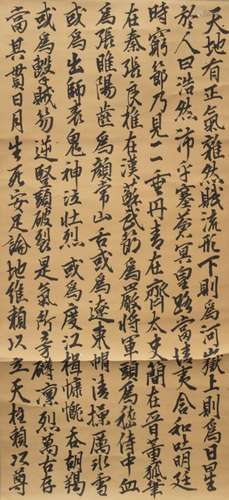 天地有正氣雜然賦流形下則為河嶽上則為日星
於人曰浩然沛乎塞蒼冥皇路當清夷含和吐明廷
時窮節乃見一一垂丹青在齊太史簡在晉董狐筆
在秦張良椎在漢蘇武節為嚴將軍頭為嵇侍中血
為張睢陽齒為顏常山舌或為遼東帽清操厲冰雪
或為出師表鬼神泣壯烈或為度江楫慷慨吞胡羯
或為擊賊笏逆豎頭破裂是氣所旁礴凜烈萬古存
當其貫日月生死安足論地維賴以立天柱賴以尊